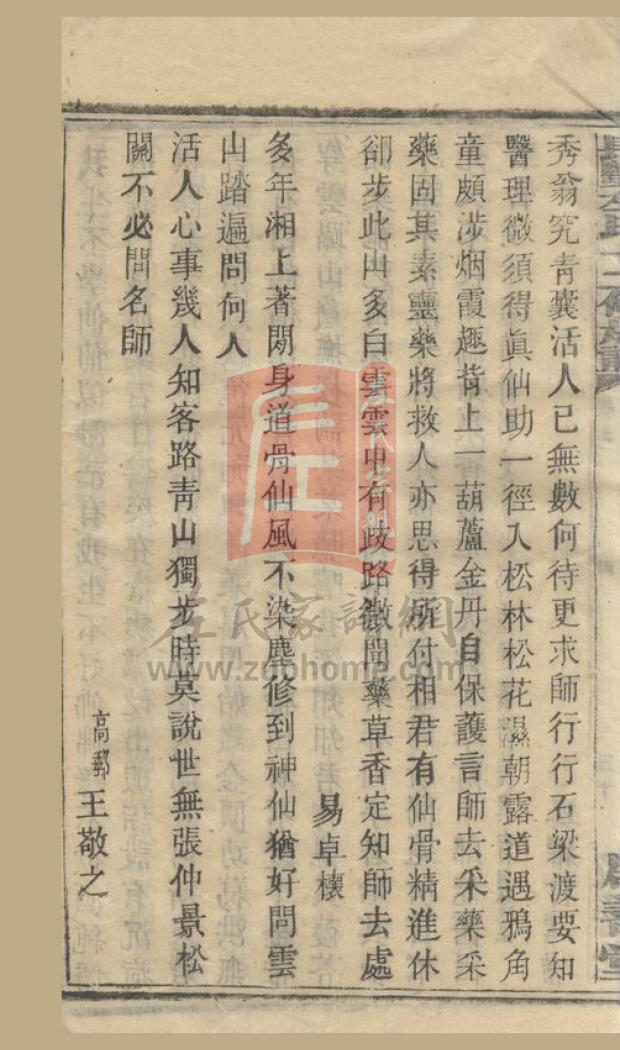 秀翁究青囊活人已無數何待更求師行行石梁渡要知
醫理微須得眞仙助一徑入松林松花濕朝露道遇鴉角
童頗涉烟霞趣背上一葫蘆金丹自保護言師去采藥采
藥固其素靈藥將救人亦思得所付相君有仙骨精進休
卻步此山多白雲雲中有歧路微聞藥草香定知師去處
易卓櫰
多年湘上著閒身道骨仙風不染塵修到神仙猶好問雲
山踏遍問何人
活人心事幾人知客路靑山獨步時莫說世無張仲景松
關不必問名師
高郵王敬之
左氏家譜網
www.zuohome.com